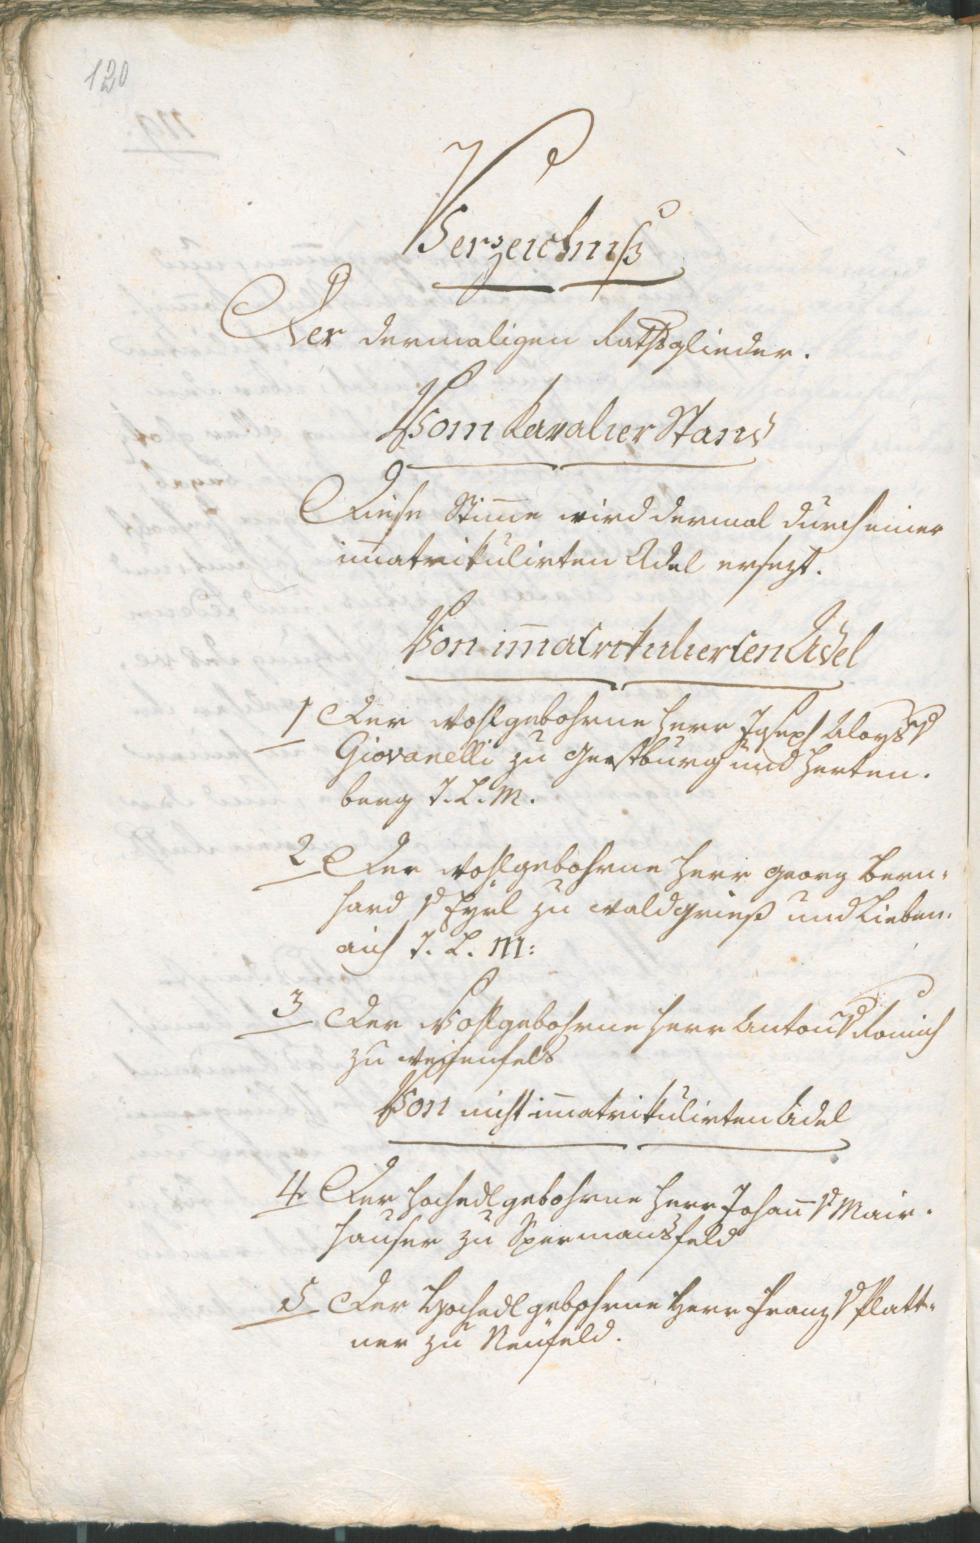 120
Verzeichniß
Der dermaligen Rathsglieder.
Vom Kavalier Stand
Diese Stim̅e wird dermal durch einen
im̅atrikulirten Adel ersezt.
Von im̅atrikulierten Adel
1 Der wohlgebohrne Herr Joseph Aloys v
Giovanelli zu Gerstburg und Herten-
berg T. L. M.
2 Der wohlgebohrne Herr Georg Bern-
hard v Hyrl zu Waldgrieß und Lieben-
aich T. L. M:
3 Der Wohlgebohrne Herr Anton v
zu Weissenfels
Von nicht im̅atrikulirten Adel
4 Der Hochedlgebohrne Herr Johan̅ v Mair-
hauser zu Spermansfeld
5 Der Hochedlgebohrne Herr Franz v Platt-
ner zu Neufeld.